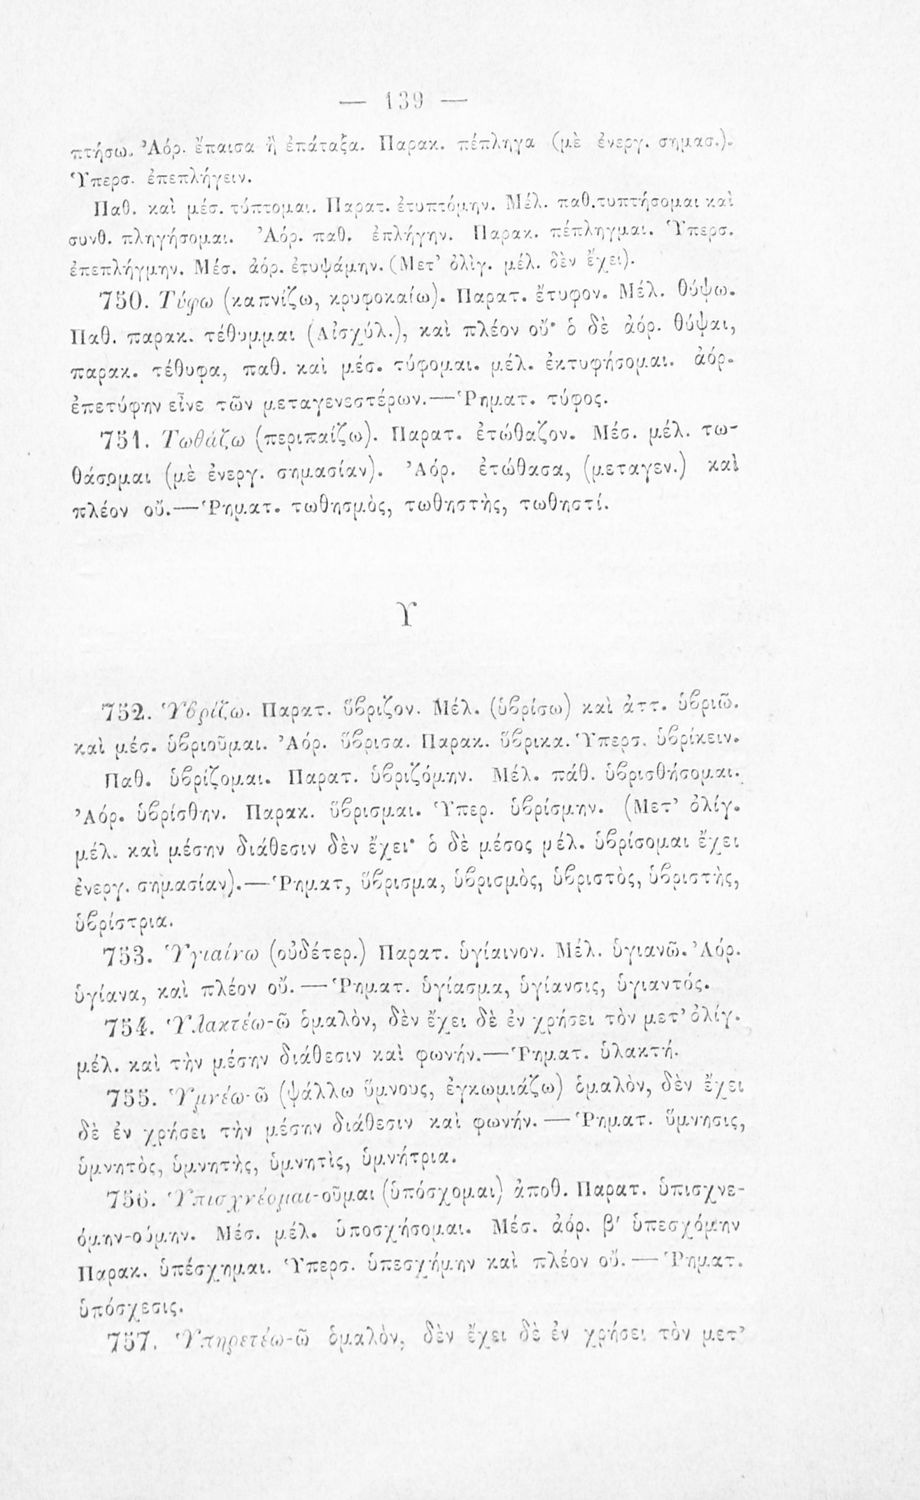 — 139 —
πτήσω. Ἀόρ. ἔπαισα ἢ ἐπάταξα. Παρακ. πέπληγα (μὲ ἐνεργ. σημασ.).
Ὑπερσ. ἐπεπλήγειν.
Παθ. καὶ μέσ. τύπτομαι. Παρατ. ἐτυπτόμην. Μέλ. παθ. τυπτήσομαι καὶ
συνθ. πληγήσομαι. Ἀόρ. παθ. ἐπλήγην. Παρακ. πέπληγμαι. Ὑπερσ.
ἐπεπλήγμην. Μέσ. ἀόρ. ἐτυψάμην. (Μετ' ὀλίγ. μέλ. δὲν ἔχει).
750. Τύφω (καπνίζω, κρυφοκαίω). Παρατ. ἔτυφον. Μέλ. θύψω.
Παθ. παρακ. τέθυμμαι (Αἰσχύλ.), καὶ πλέον οὔ· ὁ δὲ ἀόρ. θύψαι,
παρακ. τέθυφα, παθ. καὶ μέσ. τύφομαι. μέλ. ἐκτυφήσομαι. ἀόρ.
ἐπετύφην εἶνε τῶν μεταγενεστέρων.—Ῥηματ. τύφος.
751. Τωθάζω (περιπαίζω). Παρατ. ἐτώθαζον. Μέσ. μέλ. τω-
θάσομαι (μὲ ἐνεργ. σημασίαν). Ἀόρ. ἐτώθασα, (μεταγεν.) καὶ
πλέον οὔ.—Ῥηματ. τωθησμὸς, τωθηστὴς, τωθηστί.
Υ
752. Ὑβρίζω. Παρατ. ὕβριζον. Μέλ. (ὑβρίσω) καὶ ἀττ. ὑβριῶ.
καὶ μέσ. ὑβριοῦμαι. Ἀόρ. ὕβρισα. Παρακ. ὕβρικα. Ὑπερσ. ὑβρίκειν.
Παθ. ὑβρίζομαι. Παρατ. ὑβριζόμην. Μέλ. πάθ. ὑβρισθήσομαι.
Ἀόρ. ὑβρίσθην. Παρακ. ὕβρισμαι. Ὑπερ. ὑβρίσμην. (Μετ' ὀλίγ.
μέλ. καὶ μέσην διάθεσιν δὲν ἔχει· ὁ δὲ μέσος μέλ. ὑβρίσομαι ἔχει
ἐνεργ. σημασίαν).—Ῥηματ, ὕβρισμα, ὑβρισμὸς, ὑβριστὸς, ὑβριστὴς,
ὑβρίστρια.
753. Ὑγιαίνω (οὐδέτερ.) Παρατ. ὑγίαινον. Μέλ. ὑγιανῶ. Ἀόρ.
ὑγίανα, καὶ πλέον οὔ.—Ῥηματ. ὑγίασμα, ὑγίανσις, ὑγιαντός.
754. Ὑλακτέω-ῶ ὁμαλὸν, δὲν ἔχει δὲ ἐν χρήσει τὸν μετ' ὀλίγ.
μέλ. καὶ τὴν μέσην διάθεσιν καὶ φωνήν.—Ῥηματ. ὑλακτή.
755. Ὑμνέω-ῶ (ψάλλω ὕμνους, ἐγκωμιάζω) ὁμαλὸν, δὲν ἔχει
δὲ ἐν χρήσει τὴν μέσην διάθεσιν καὶ φωνήν.—Ῥηματ. ὕμνησις,
ὑμνητὸς, ὑμνητὴς, ὑμνητὶς, ὑμνήτρια.
756. Ὑπισχνέομαι-οῦμαι (ὑπόσχομαι) ἀποθ. Παρατ. ὑπισχνε-
όμην-ούμην. Μέσ. μέλ. ὑποσχήσομαι. Μέσ. ἀόρ. β' ὑπεσχόμην
Παρακ. ὑπέσχημαι. Ὑπερσ. ὑπεσχήμην καὶ πλέον οὔ.—Ῥηματ.
ὑπόσχεσις.
757. Ὑπηρετέω-ῶ ὁμαλὸν, δὲν ἔχει δὲ ἐν χρήσει τὸν μετ'